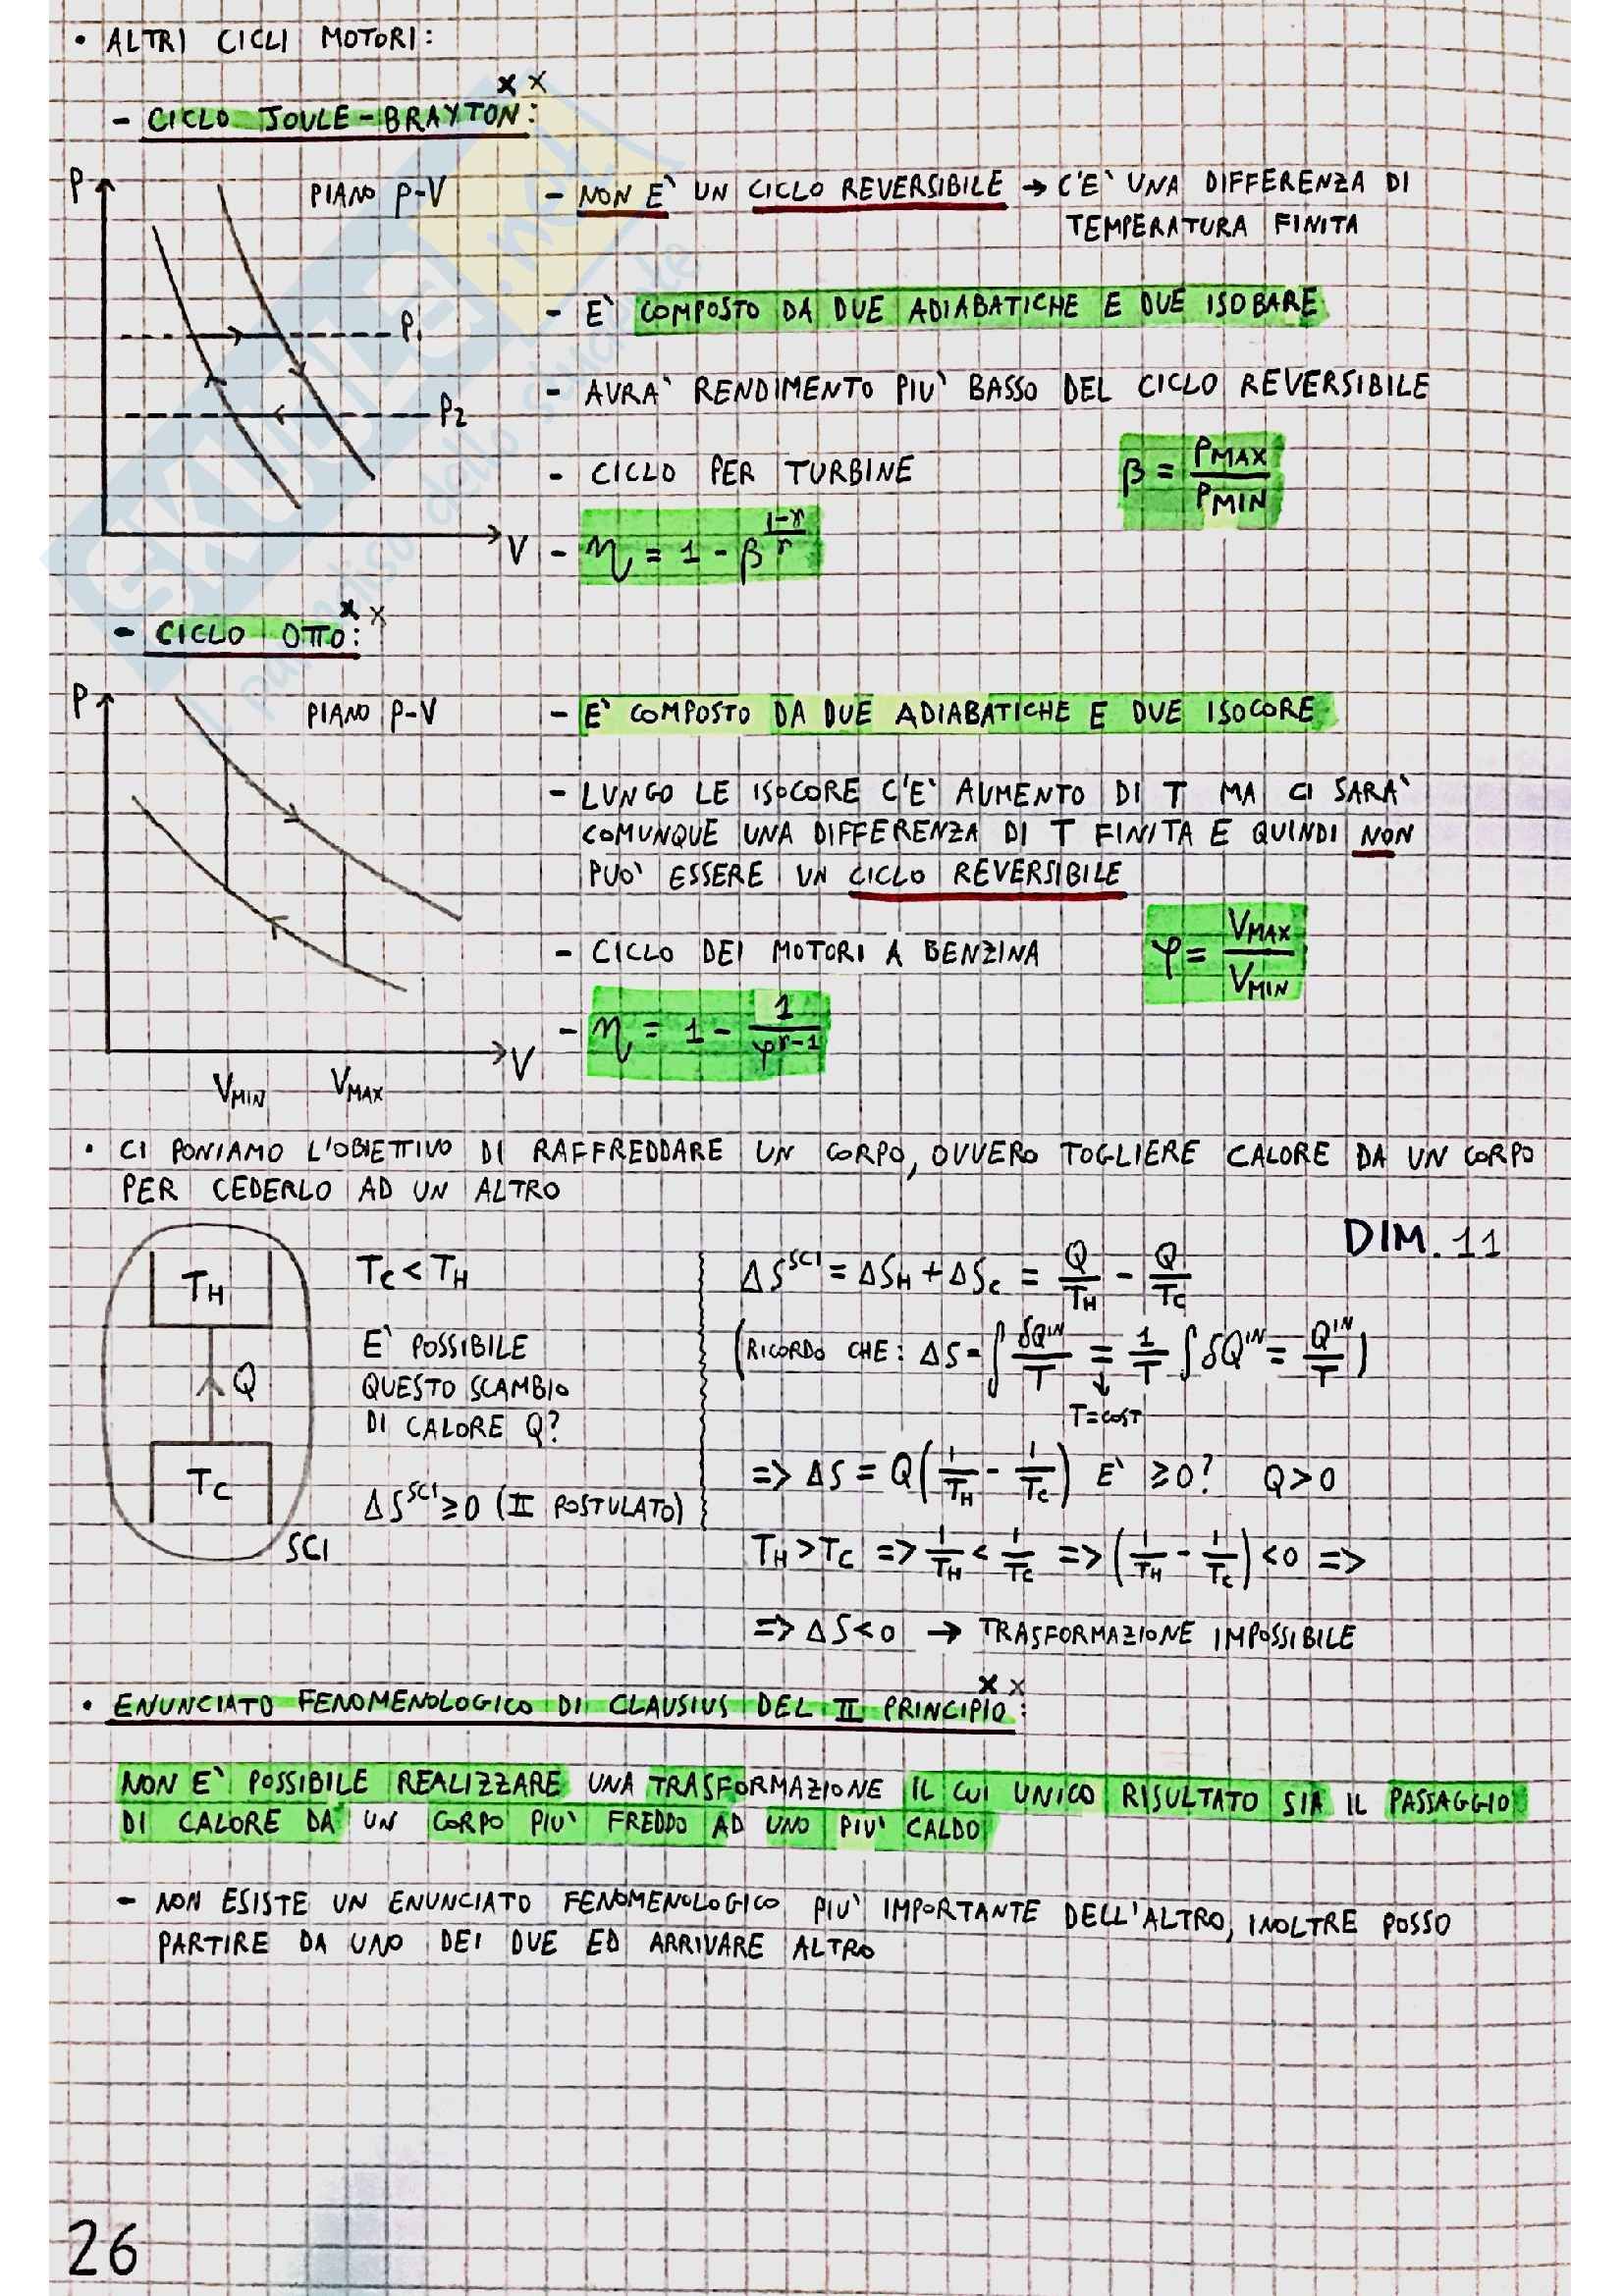 • ALTRI CICLI MOTORI:
x x
- CICLO JOULE-BRAYTON:
P
PIANO P-V
P1
P2
V
- NON E` UN CICLO REVERSIBILE → C'E` UNA DIFFERENZA DI
TEMPERATURA FINITA
- E` COMPOSTO DA DUE ADIABATICHE E DUE ISOBARE
- AVRA` RENDIMENTO PIU` BASSO DEL CICLO REVERSIBILE
- CICLO PER TURBINE
β = PMAX/PMIN
- η = 1 - β^((1-γ)/γ)
x x
- CICLO OTTO:
P
PIANO P-V
V
VMIN
VMAX
- E` COMPOSTO DA DUE ADIABATICHE E DUE ISOCORE
- LUNGO LE ISOCORE C'E` AUMENTO DI T MA CI SARA`
COMUNQUE UNA DIFFERENZA DI T FINITA E QUINDI NON
PUO` ESSERE UN CICLO REVERSIBILE
- CICLO DEI MOTORI A BENZINA
φ = VMAX/VMIN
- η = 1 - 1/φ^(γ-1)
• CI PONIAMO L'OBIETTIVO DI RAFFREDDARE UN CORPO, OVVERO TOGLIERE CALORE DA UN CORPO
PER CEDERLO AD UN ALTRO
TH
Q
TC
SCI
TC < TH
E` POSSIBILE
QUESTO SCAMBIO
DI CALORE Q?
ΔS^SCI ≥ 0 (II POSTULATO)
DIM. 11
ΔS^SCI = ΔSH + ΔSC = Q/TH - Q/TC
(RICORDO CHE: ΔS = ∫ δQ^IN/T = 1/T ∫ δQ^IN = Q^IN/T)
↓
T=COST
=> ΔS = Q(1/TH - 1/TC) E` ≥0? Q>0
TH > TC => 1/TH < 1/TC => (1/TH - 1/TC) <0 =>
=> ΔS<0 → TRASFORMAZIONE IMPOSSIBILE
x x
• ENUNCIATO FENOMENOLOGICO DI CLAUSIUS DEL II PRINCIPIO:
NON E` POSSIBILE REALIZZARE UNA TRASFORMAZIONE IL CUI UNICO RISULTATO SIA IL PASSAGGIO
DI CALORE DA UN CORPO PIU` FREDDO AD UNO PIU` CALDO
- NON ESISTE UN ENUNCIATO FENOMENOLOGICO PIU` IMPORTANTE DELL'ALTRO, INOLTRE POSSO
PARTIRE DA UNO DEI DUE ED ARRIVARE ALTRO
26
SKUOLA.net
paradiso dello studente